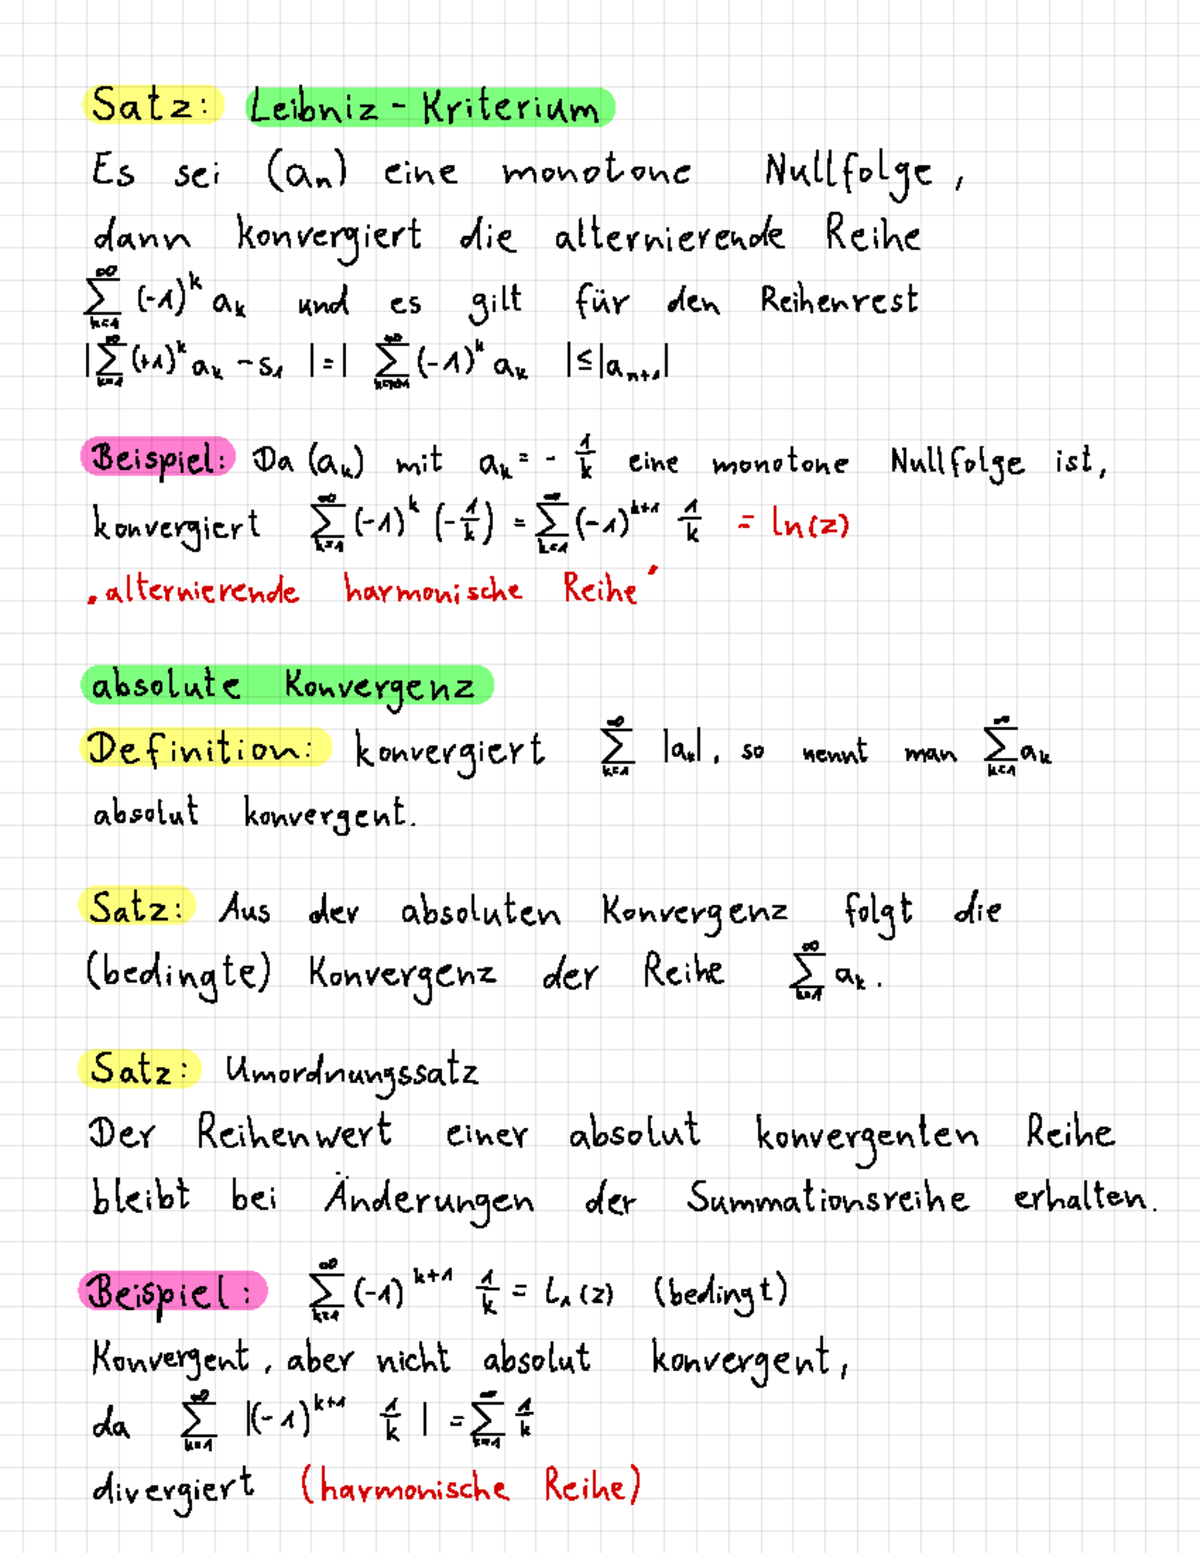 Satz: Leibniz-Kriterium
Es sei (aₙ) eine monotone Nullfolge,
dann konvergiert die alternierende Reihe
∑_{k=1}^{∞} (-1)^k a_k und es gilt für den Reihenrest
|∑_{k=1}^{∞} (+1)^k a_k - s_1 | = | ∑_{k=n+1}^{∞} (-1)^k a_k | ≤ |a_{n+1}|
Beispiel: Da (a_k) mit a_k = - 1/k eine monotone Nullfolge ist,
konvergiert ∑_{k=1}^{∞} (-1)^k (-1/k) = ∑_{k=1}^{∞} (-1)^{k+1} 1/k = ln(2)
"alternierende harmonische Reihe"
absolute Konvergenz
Definition: konvergiert ∑_{k=1}^{∞} |a_k|, so nennt man ∑_{k=1}^{∞} a_k
absolut konvergent.
Satz: Aus der absoluten Konvergenz folgt die
(bedingte) Konvergenz der Reihe ∑_{k=1}^{∞} a_k.
Satz: Umordnungssatz
Der Reihenwert einer absolut konvergenten Reihe
bleibt bei Änderungen der Summationsreihe erhalten.
Beispiel: ∑_{k=1}^{∞} (-1)^{k+1} 1/k = Ln(2) (bedingt)
Konvergent, aber nicht absolut konvergent,
da ∑_{k=1}^{∞} |(-1)^{k+1} 1/k | = ∑_{k=1}^{∞} 1/k
divergiert (harmonische Reihe)